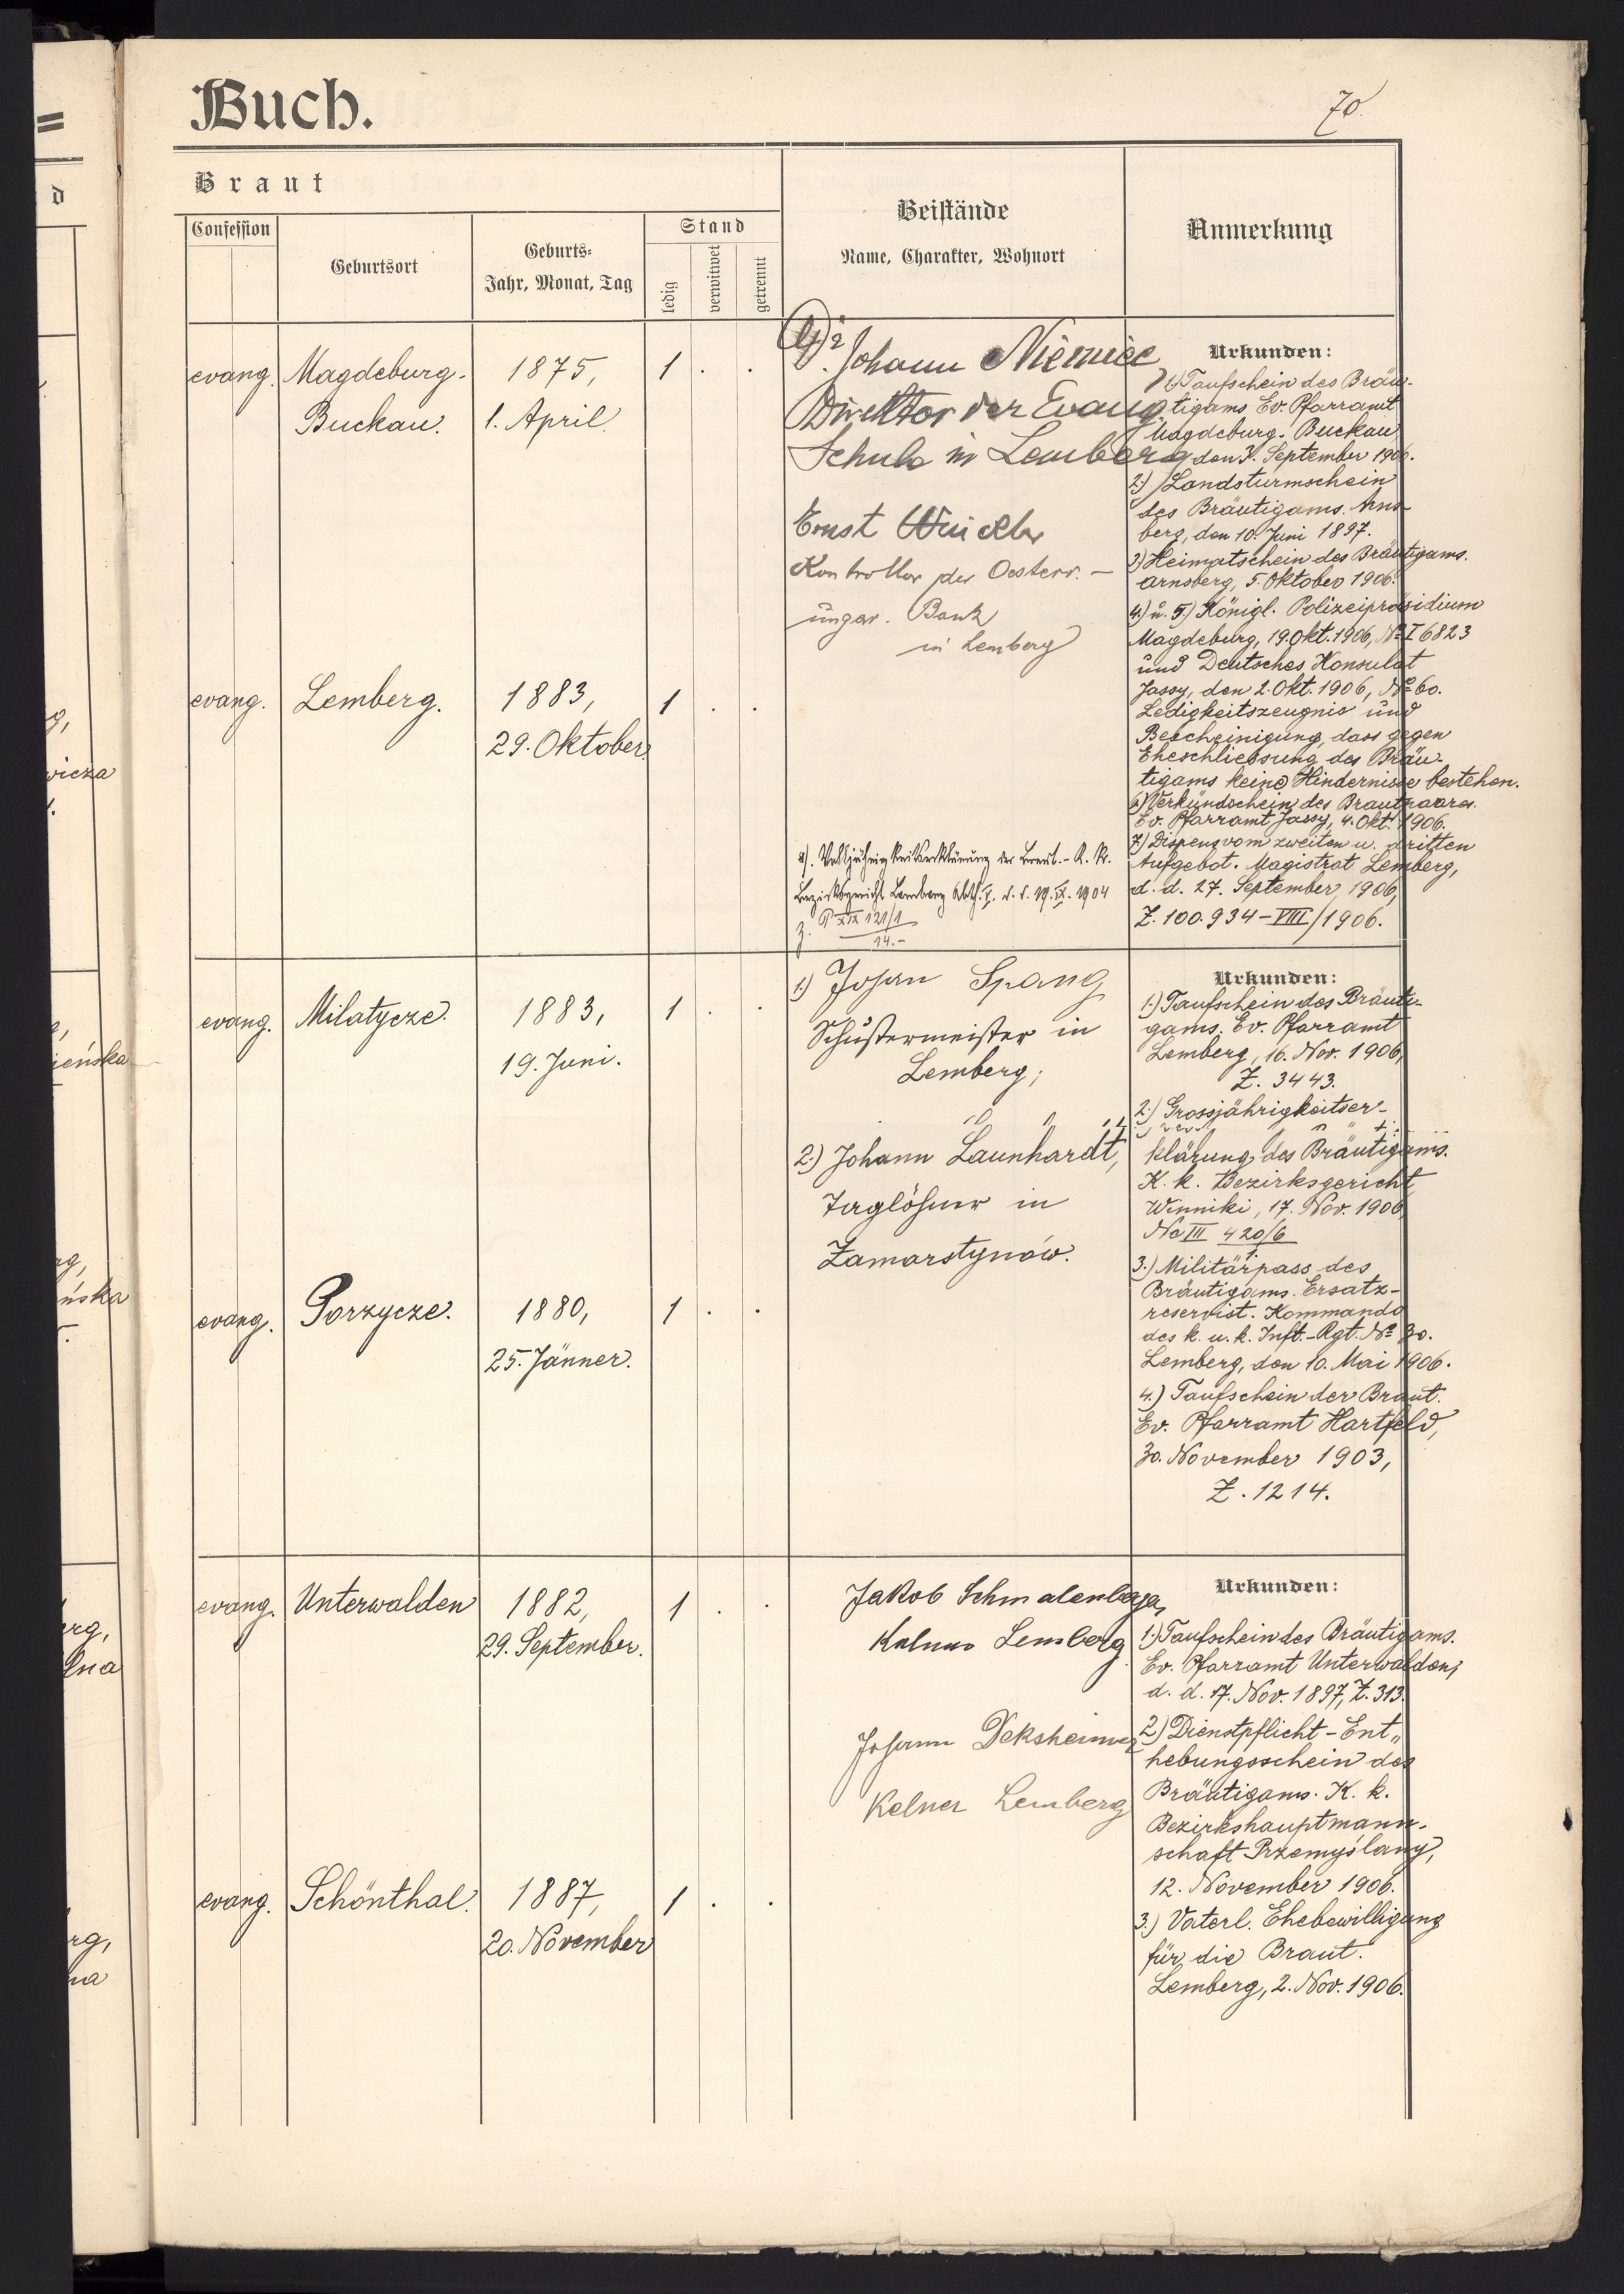 Buch.
70.
Braut
Confession
Geburtsort
Geburts-
Jahr, Monat, Tag
Stand
ledig
verwitwet
getrennt
Beistände
Name, Charakter, Wohnort
Anmerkung
evang.
Magdeburg-
Buckau.
1875,
1. April.
1 . .
Johann Niemiec
Direktor der Evang.
Schule in Lemberg
Ernst
Kontrollor der Oesterr. –
ungar. Bank
in Lemberg
Urkunden:
1.) Taufschein des Bräu-
tigams Ev. Pfarramt
Magdeburg-Buckau
den 3. September 1906.
2.) Landsturmschein
des Bräutigams. Arns-
berg, den 10. Juni 1897.
3.) Heimatschein des Bräutigams.
Arnsberg, 5. Oktober 1906.
4.) u. 5.) Königl. Polizeipräsidium
Magdeburg, 19. Okt. 1906, No I 6823
und Deutsches Konsulat
Jassy, den 2. Okt. 1906, No 60.
Ledigkeitszeugnis und
Bescheinigung, dass gegen
Eheschliessung des Bräu-
tigams keine Hindernisse bestehen.
6.) Verkündschein des Brautpaares.
Ev. Pfarramt Jassy, 4. Okt. 1906.
7.) Dispens vom zweiten u. dritten
Aufgebot. Magistrat Lemberg,
d. d. 27. September 1906,
Z. 100.934 – VIII/1906.
evang.
Lemberg.
1883,
29. Oktober.
1 . .
8). Volljährigkeitserklärung der Braut. – K. K.
Bezirksgericht Lemberg Abth. V. d. d. 19. IX. 1904
Z. P XIX 121/1
14.–
evang.
Milatycze.
1883,
19. Juni.
1 . .
1.) Johan Spang
Schustermeister in
Lemberg;
2.) Johann Launhardt,
Taglöhner in
Zamarstynów.
Urkunden:
1.) Taufschein des Bräuti-
gams. Ev. Pfarramt
Lemberg, 16. Nov. 1906,
Z. 3443.
2.) Grossjährigkeitser-
klärung des Bräutigams.
K. k. Bezirksgericht
Winniki, 17. Nov. 1906
Nc III 420/6
1.
3.) Militärpass des
Bräutigams. Ersatz-
reservist. Kommando
des k. u. k. Inft.-Rgt. No 30.
Lemberg, den 10. Mai 1906.
4.) Taufschein der Braut.
Ev. Pfarramt Hartfeld,
30. November 1903,
Z. 1214.
evang.
Porzycze.
1880,
25. Jänner.
1 . .
evang.
Unterwalden
1882,
29. September.
1 . .
Jakob Schmalenberg,
Lemberg
Johann Deksheimer
Kelner Lemberg
Urkunden:
1.) Taufschein des Bräutigams.
Ev. Pfarramt Unterwalden,
d. d. 17. Nov. 1897, Z. 313.
2.) Dienstpflicht-Ent„
hebungsschein des
Bräutigams. K. k.
Bezirkshauptmann-
schaft Przemyślany,
12. November 1906.
3.) Vaterl. Ehebewilligung
für die Braut.
Lemberg, 2. Nov. 1906.
evang.
Schönthal.
1887,
20. November
1 . .